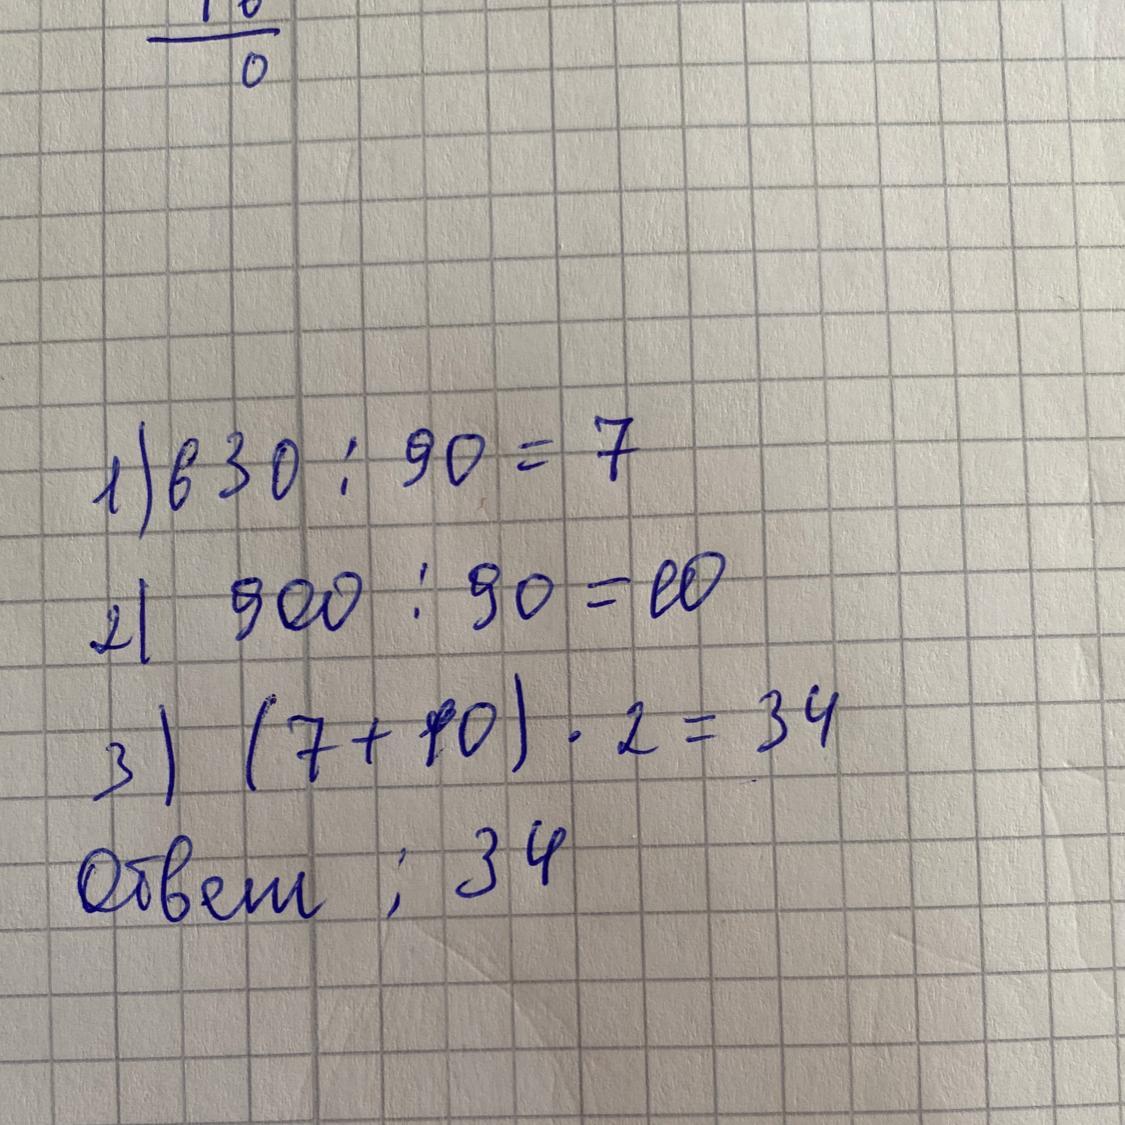 0
1) 630 : 90 = 7
2) 900 : 90 = 10
3) (7 + 10) · 2 = 34
Ответ : 34